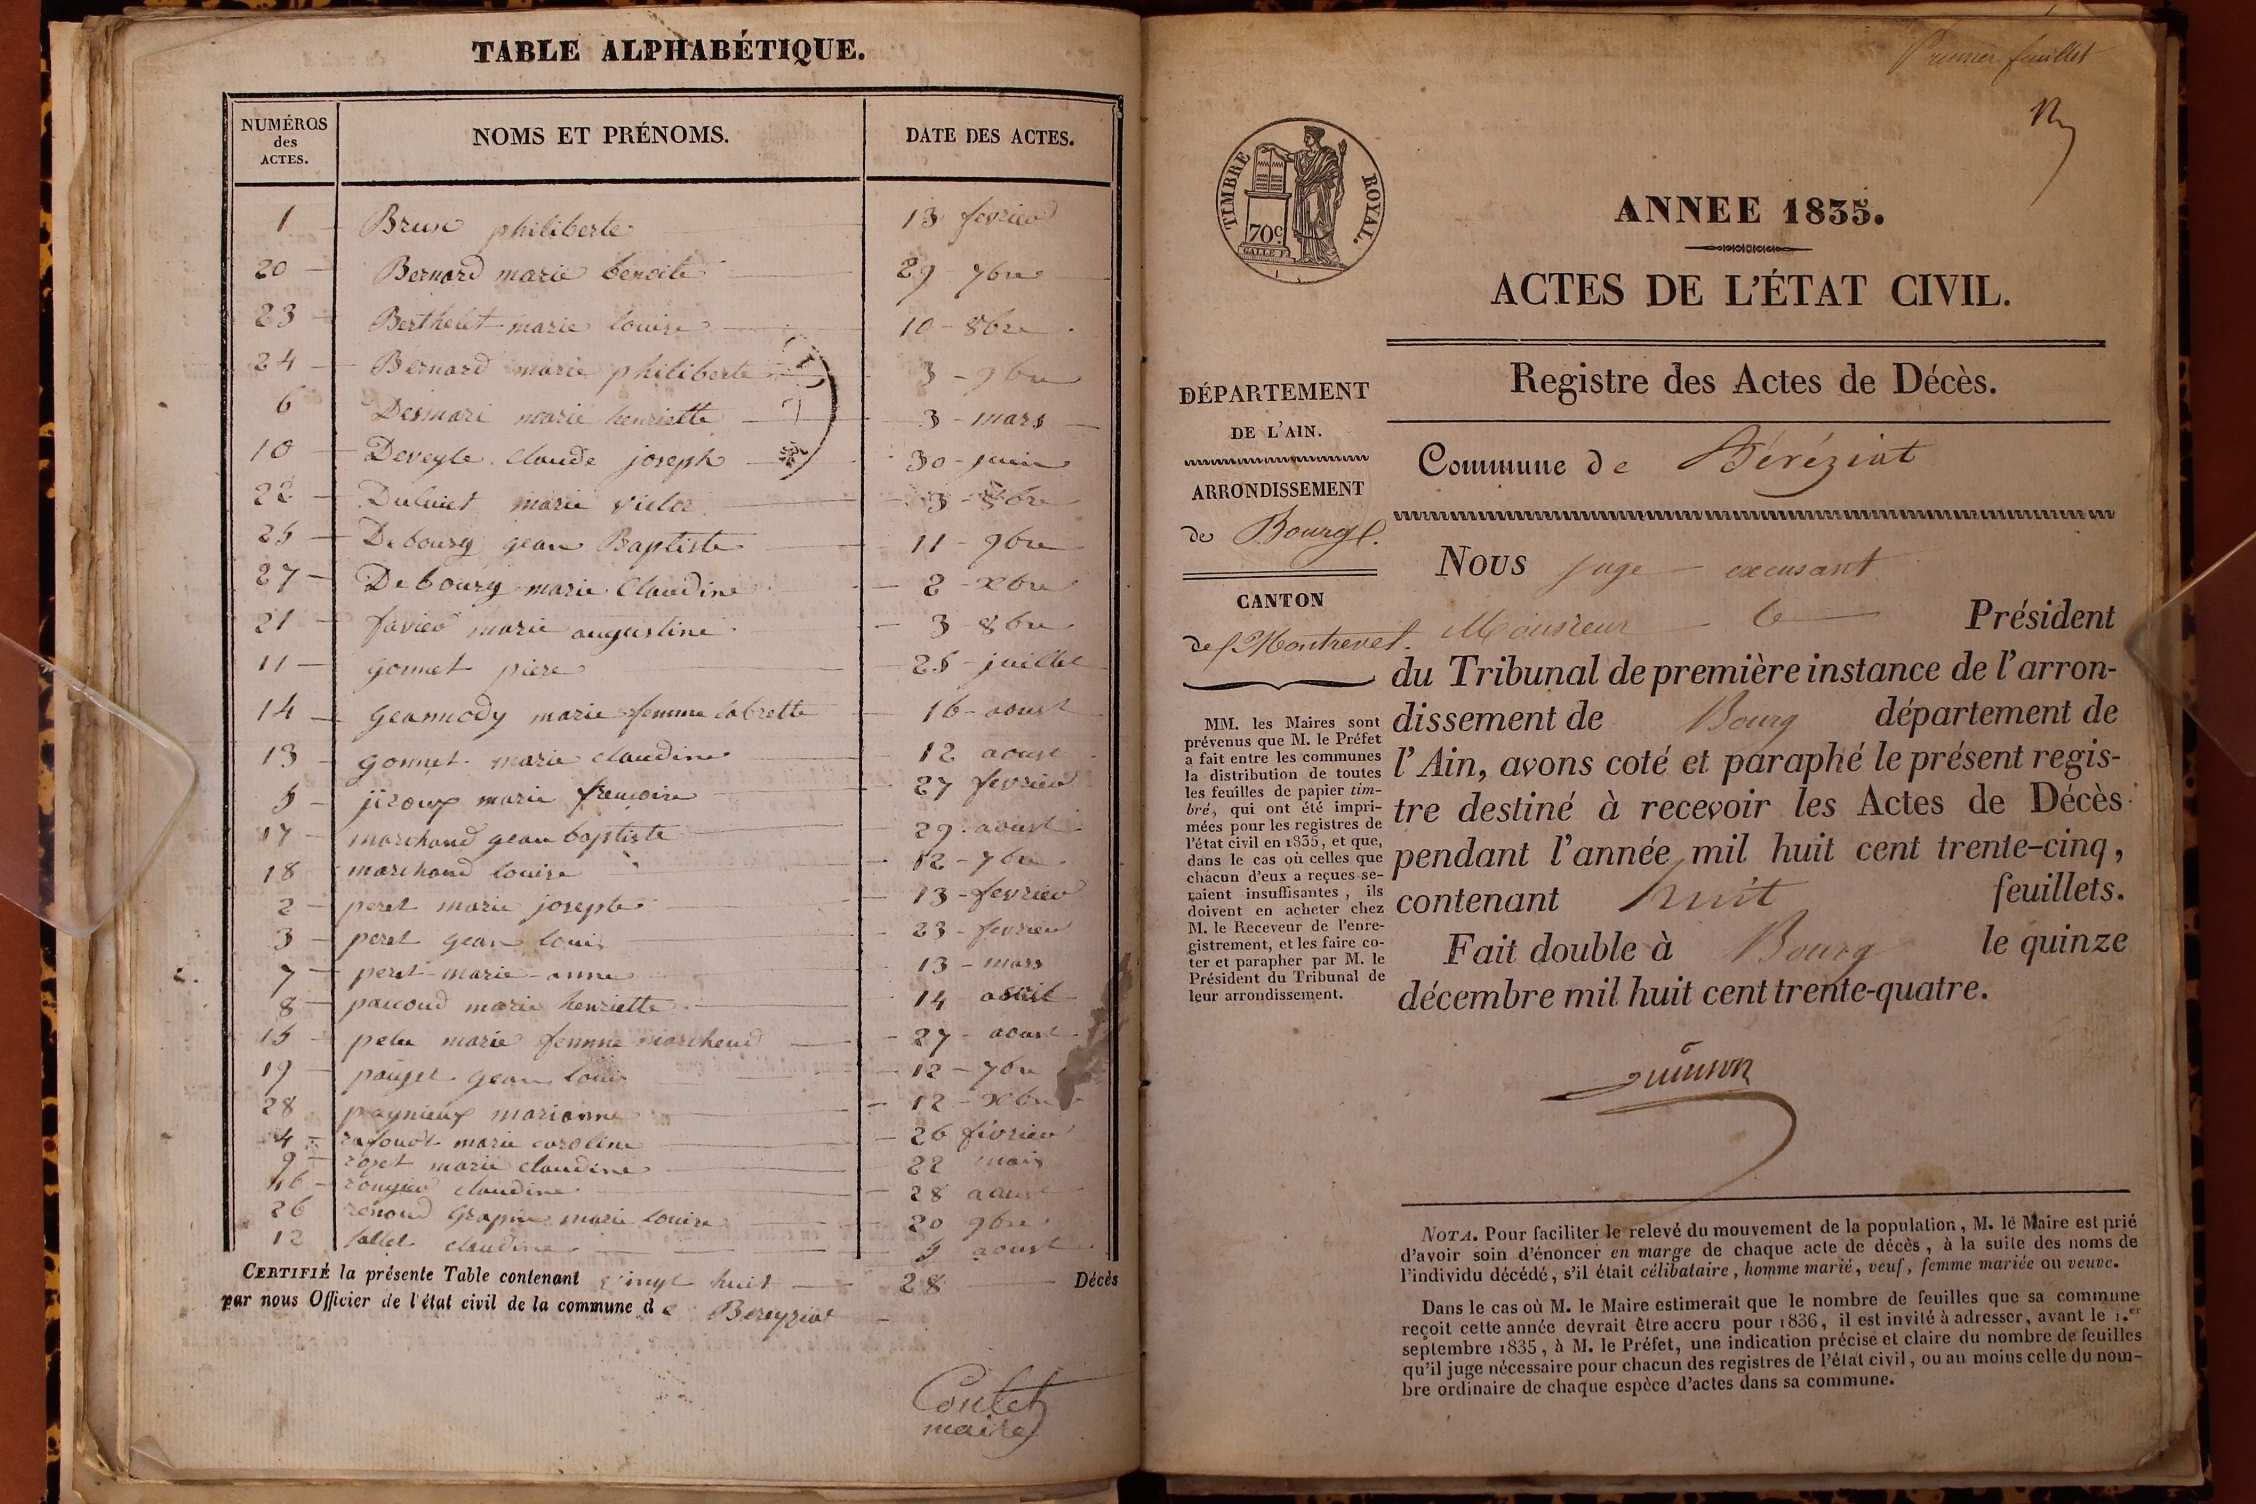 TABLE ALPHABÉTIQUE.
NUMÉROS des ACTES.
NOMS ET PRÉNOMS.
DATE DES ACTES.
1 philiberte 13 fevrier
20 Bernard marie benoite 29 7bre
23 Berthelet marie louise 10 - 8bre
24 Bernard marie philiberte 3 - 9bre
6 Desmari marie henriette 3 - mars
10 Deveyle claude joseph 30 - juin
22 marie victor 3 - 8bre
25 Debourg gean Baptiste 11 - 9bre
27 Debourg marie Claudine 2 - xbre
21 favier marie augustine 3 8bre
11 gonnet piere 25 - juillet
14 geannody marie femme labrette 16 - aoust
13 gonnet marie claudine 12 aoust
5 jiroux marie 27 fevrier
17 marchand gean baptiste 29 aoust
18 marchand louise 12 - 7bre
2 peret marie 13 - fevrier
3 peret gean louis 23 - fevrier
7 peret marie - anne 13 - mars
8 paccoud marie henriette 14
15 marie femme marchand 27 - aoust
19 pauget gean louis 12 - 7bre
28 pagnieux marianne 12 - xbre
4 marie caroline 26 fevrier
9 roset marie claudine 22
16 claudine 28 aoust
26 renoud grapin marie louise 20 9bre
12 sallet claudine 5 aoust
CERTIFIÉ la présente Table contenant vingt huit 28 Décès
par nous Officier de l'état civil de la commune de Bereyziat
Coulet
maire
Premier feuillet
TIMBRE ROYAL.
70c.
GALLE F.
ANNEE 1835.
ACTES DE L'ÉTAT CIVIL.
Registre des Actes de Décès.
DÉPARTEMENT
DE L'AIN.
ARRONDISSEMENT
de Bourg.
CANTON
de Montrevel.
MM. les Maires sont
prévenus que M. le Préfet
a fait entre les communes
la distribution de toutes
les feuilles de papier tim-
bré, qui ont été impri-
mées pour les registres de
l'état civil en 1835, et que,
dans le cas où celles que
chacun d'eux a reçues se-
raient insuffisantes, ils
doivent en acheter chez
M. le Receveur de l'enre-
gistrement, et les faire co-
ter et parapher par M. le
Président du Tribunal de
leur arrondissement.
Commune de Béréziat
Nous juge excusant
Monsieur le Président
du Tribunal de première instance de l'arron-
dissement de Bourg département de
l'Ain, avons coté et paraphé le présent regis-
tre destiné à recevoir les Actes de Décès
pendant l'année mil huit cent trente-cinq,
contenant huit feuillets.
Fait double à Bourg le quinze
décembre mil huit cent trente-quatre.
NOTA. Pour faciliter le relevé du mouvement de la population, M. le Maire est prié
d'avoir soin d'énoncer en marge de chaque acte de décès, à la suite des noms de
l'individu décédé, s'il était célibataire, homme marié, veuf, femme mariée ou veuve.
Dans le cas où M. le Maire estimerait que le nombre de feuilles que sa commune
reçoit cette année devrait être accru pour 1836, il est invité à adresser, avant le 1.er
septembre 1835, à M. le Préfet, une indication précise et claire du nombre de feuilles
qu'il juge nécessaire pour chacun des registres de l'état civil, ou au moins celle du nom-
bre ordinaire de chaque espèce d'actes dans sa commune.